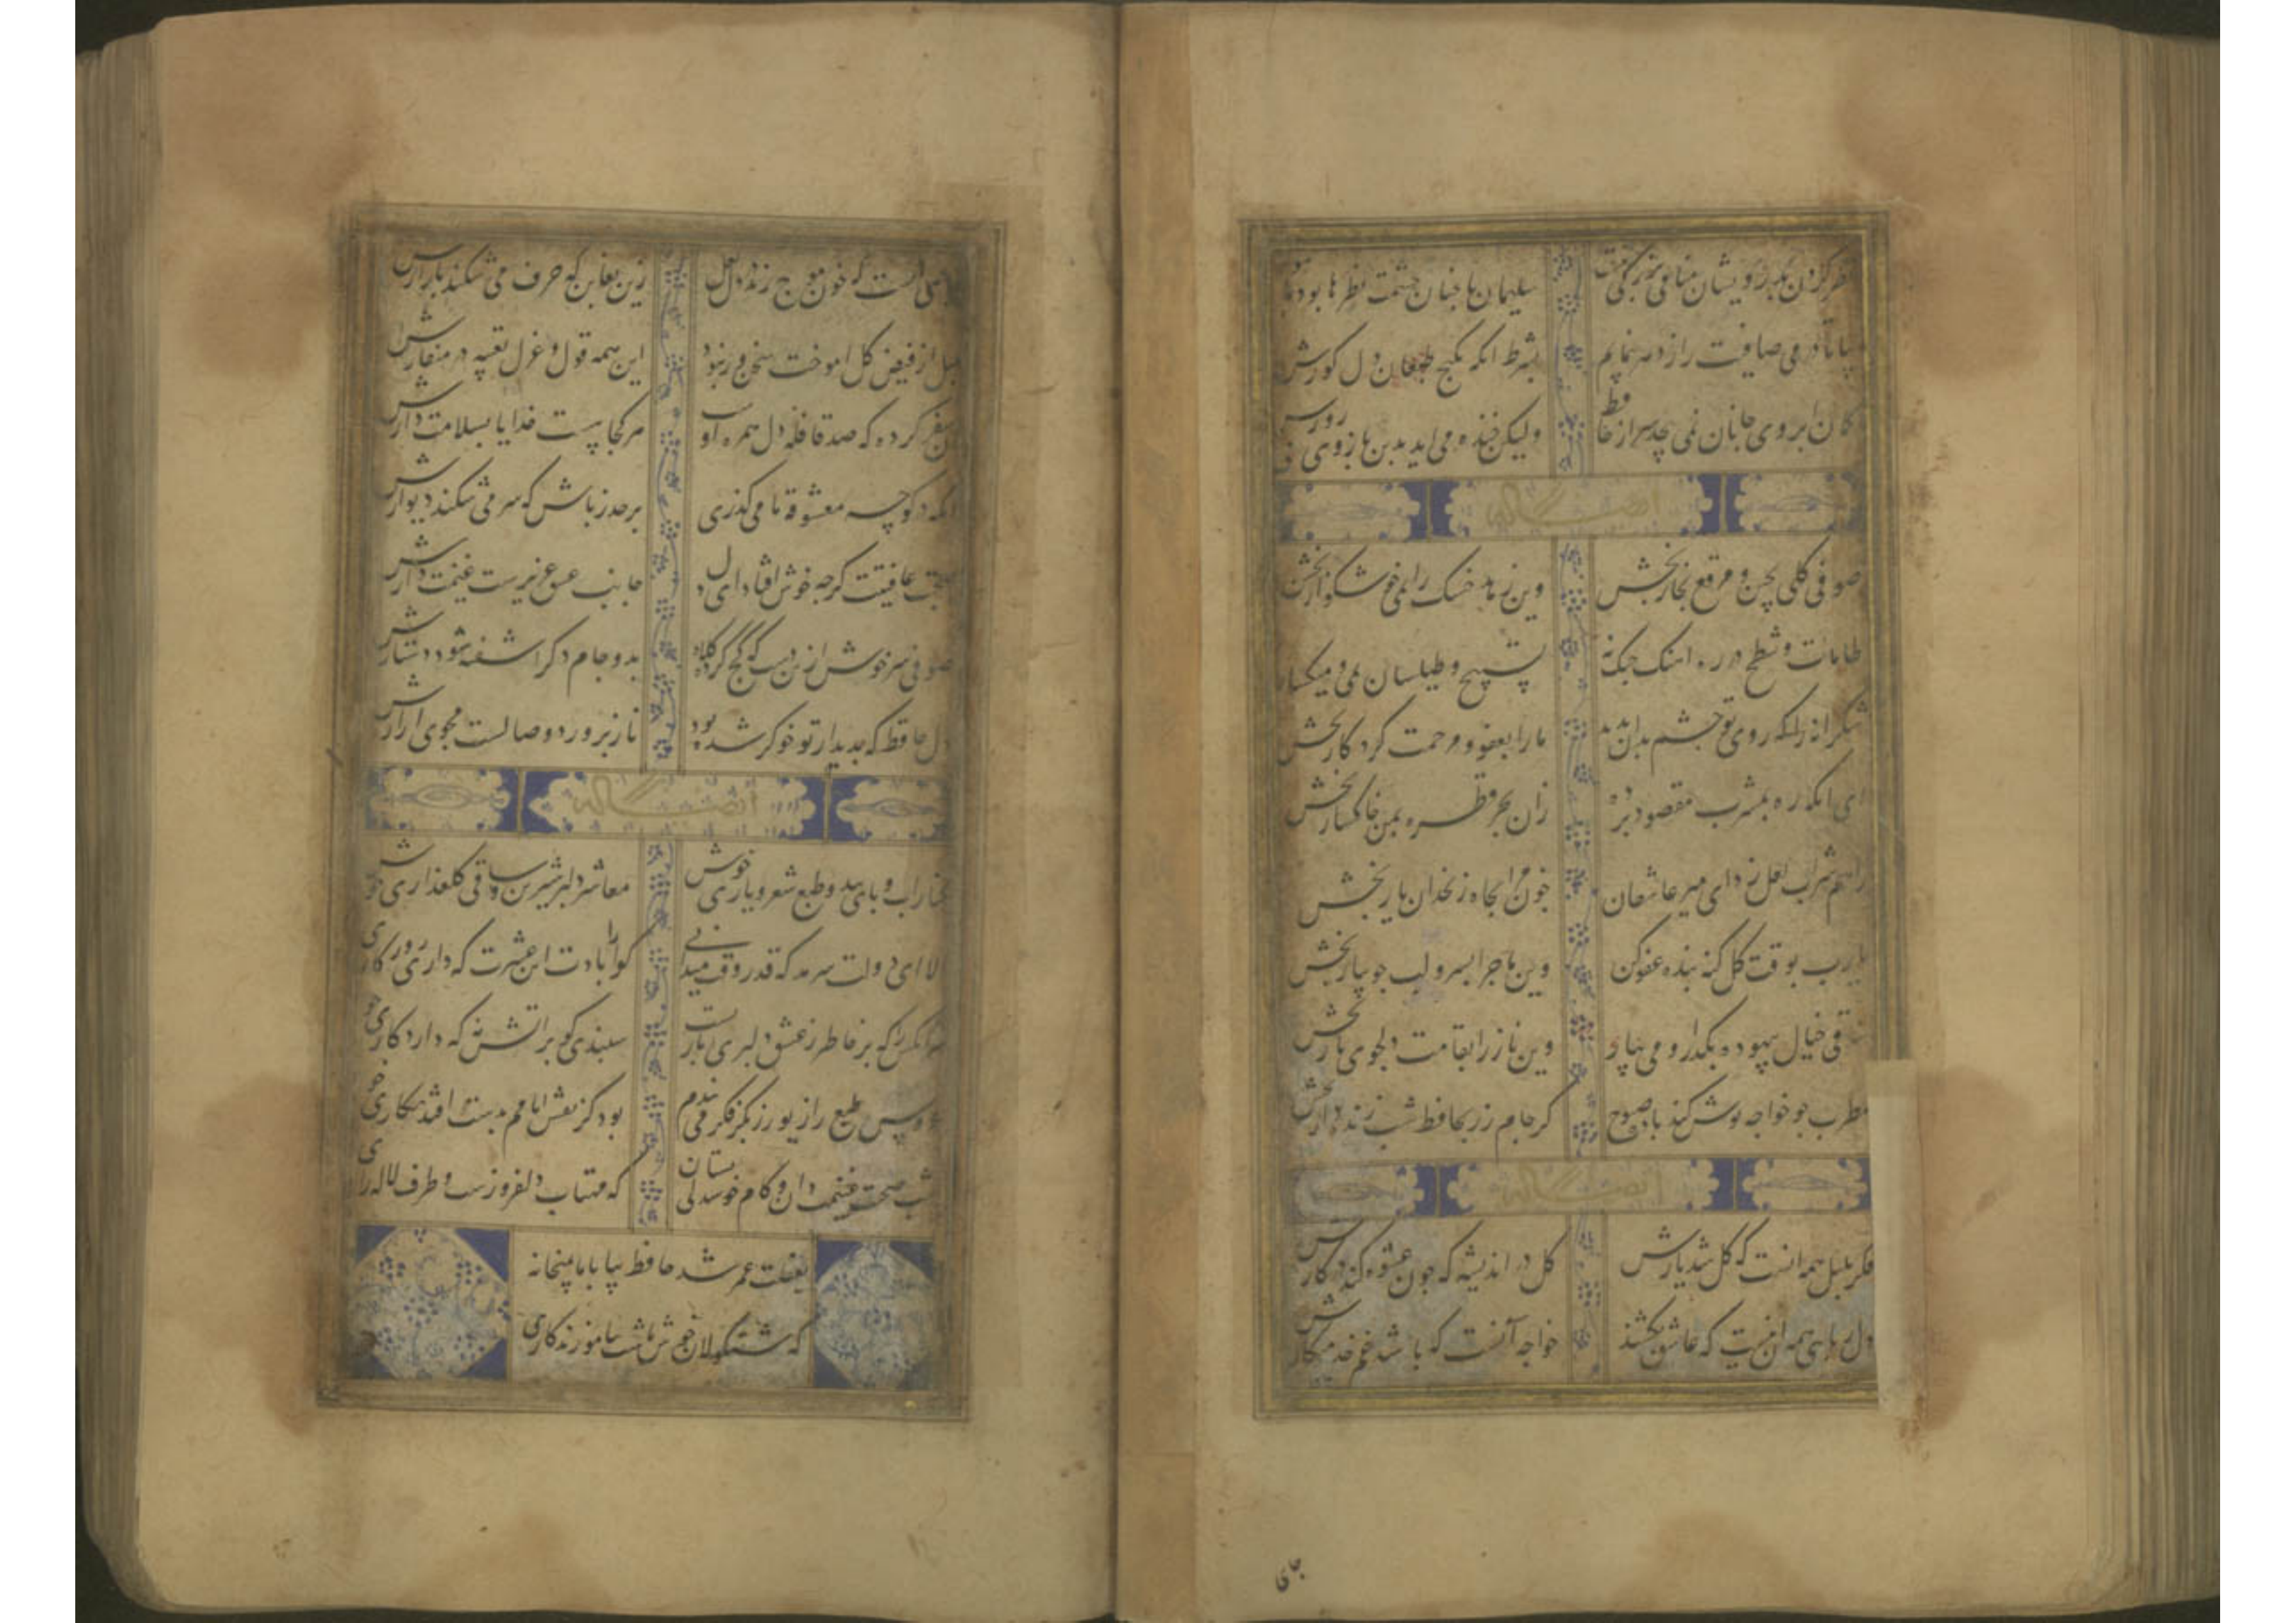 نظر کردن بدرویشان منافی بزرگی نیست سلیمان با چنان حشمت نظرها بود با
بیا تا در می صافیت راز دهر بنمایم بشرط آنکه بکج طبعان دل کورش
کمان ابروی جانان نمی پیچد سر از حافظ ولیکن خنده می آید بدین بازوی بی زورش
ایضا له
صوفی گلی بچین و مرقع بخار بخش وین زهد خشک را بمی خوشگوار بخش
طامات و شطح در ره آهنگ چنگ نه تسبیح و طیلسان بمی و میگسار
شکرانه را که روی تو چشم بدان ندید ما را بعفو و مرحمت کردگار بخش
ای آنکه ره بمشرب مقصود برده زان بحر قطره بمن خاکسار بخش
راهم شراب لعل زد ای میر عاشقان خون مرا بچاه زنخدان یار بخش
یا رب بوقت گل گنه بنده عفو کن وین ماجرا بسرو لب جویبار بخش
ساقی خیال بیهوده بگذار و می بیار وین ناز را بقامت دلجوی یار بخش
مطرب چو خواجه نوش کند باده صبوح گر جام زر بحافظ شب زنده دار بخش
ایضا له
فکر بلبل همه آنست که گل شد یارش گل در اندیشه که چون عشوه کند در کارش
دل ربایی همه آن نیست که عاشق بکشند خواجه آنست که باشد غم خدمتکارش
جای
لعلی است که خون موج زند در دل لعل زین تغابن که خزف می شکند بازارش
بلبل از فیض گل آموخت سخن ور نه نبود این همه قول و غزل تعبیه در منقارش
آن سفر کرده که صد قافله دل همره اوست هر کجا هست خدایا بسلامت دارش
ای که در کوچه معشوقه ما می گذری بر حذر باش که سر می شکند دیوارش
صحبت عافیتت گرچه خوش افتاد ای دل جانب عشق عزیزست غنیمت دارش
صوفی سر خوش ازین دست که کج کرد کلاه بدو جام دگر آشفته شود دستارش
دل حافظ که بدیدار تو خوگر شده بود نازپرورد وصالست مجوی آزارش
ایضا له
شراب و طبع شعر و یاری خوش معاشر دلبر شیرین و ساقی گلعذاری خوش
الا ای دولت سرمد که قدر وقت میدانی گوارا بادت این عشرت که داری روزگاری
هر آنکس را که بر خاطر ز عشق دلبری باریست سپندی گو بر آتش نه که دارد کاری
عروس طبع را زیور ز بکر فکر می بندم بود کز نقش ایامم بدست افتد نگاری خوش
شب صحبت غنیمت دان و کام خوشدلی بستان که مهتاب دلفروزست و طرف لاله زاری
بغفلت عمر شد حافظ بیا با ما بمیخانه
که شنگولان خوش باشت بیاموزند کاری